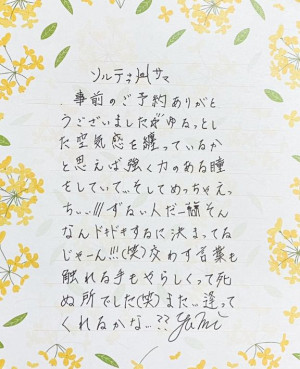 ソルティ 서 サマ
事前のご予約ありがと
うございました♂ゆるっとし
た空気感を纏っているか
と思えば強く力のある瞳
をしていて…そしてめっちゃえっ
ちぃぃ///ずるい人だー そん
なんドキドキするに決まってる
じゃーん!!!(笑)交わす言葉も
触れる手もやらしくって死
ぬ所でした(笑)また…逢って
くれるかな…??yumi